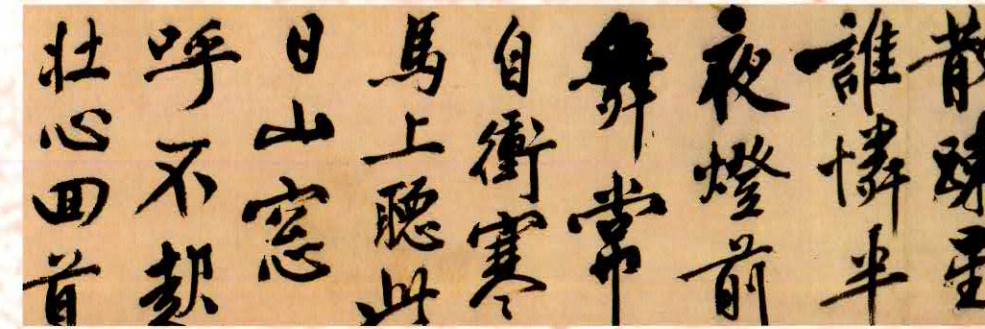 散疎星
誰憐半
夜燈前
舞常
自衝寒
馬上聽此
日山窓
呼不
壮心回首